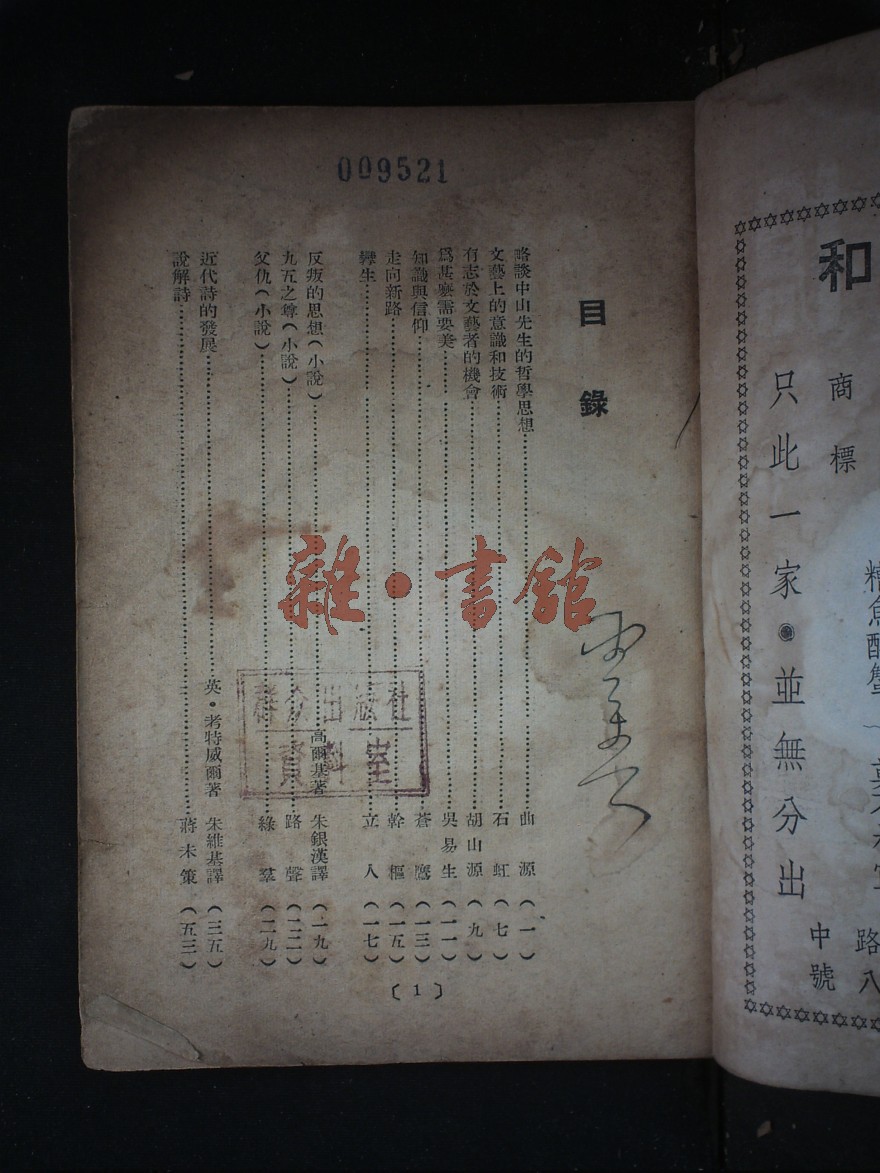 009521
目錄
略談中山先生的哲學思想 曲源（一）
文藝上的意識和技術 石虹（七）
有志於文藝者的機會 胡山源（九）
爲甚麼需要美 吳易生（一一）
知識與信仰 蒼鷹（一三）
走向新路 幹樞（一五）
孿生 立人（一七）
反叛的思想（小說） 高爾基著 朱銀漢譯（一九）
九五之尊（小說） 路聲（二二）
父仇（小說） 綠羣（二九）
近代詩的發展 英·考特威爾著 朱維基譯（三五）
說解詩 蔣未策（五三）
〔1〕
群众出版社
資料室
雜·書館
和
商標
只此一家·並無分出
糟魚醉蟹
中號
路八